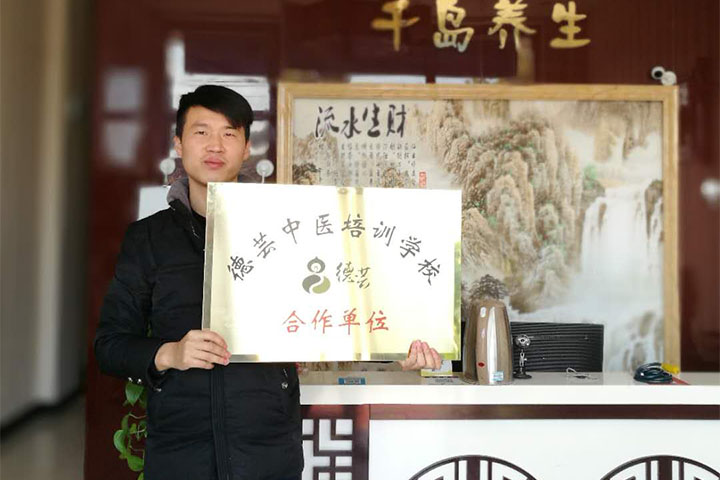 千岛养生
流水生财
德芸中医培训学校
德芸
合作单位